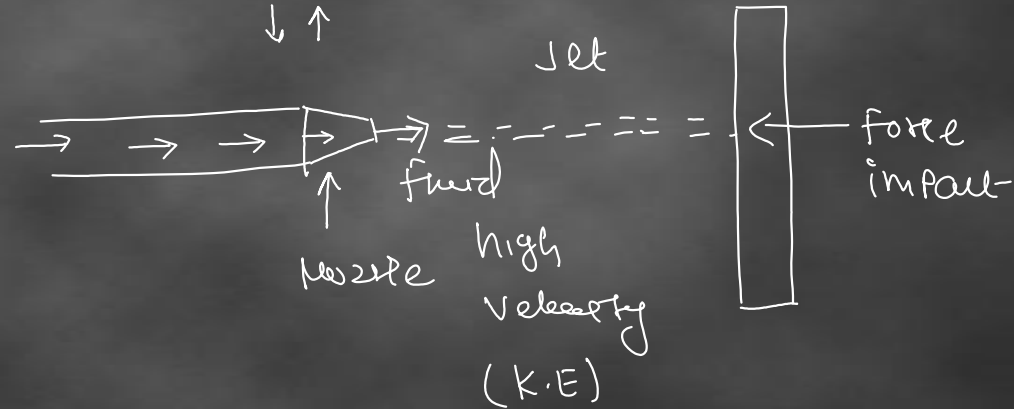 Jet
Force
impact
fluid
Nozzle
high
velocity
(K.E)